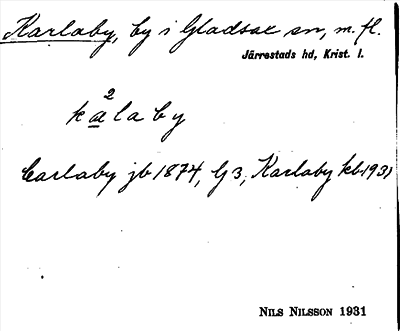 Karlaby, by i Gladsax sn, m. fl.
Järrestads hd, Krist. l.
2
kalaby
Carlaby jb 1874, G 3, Karlaby kb 1931
NILS NILSSON 1931